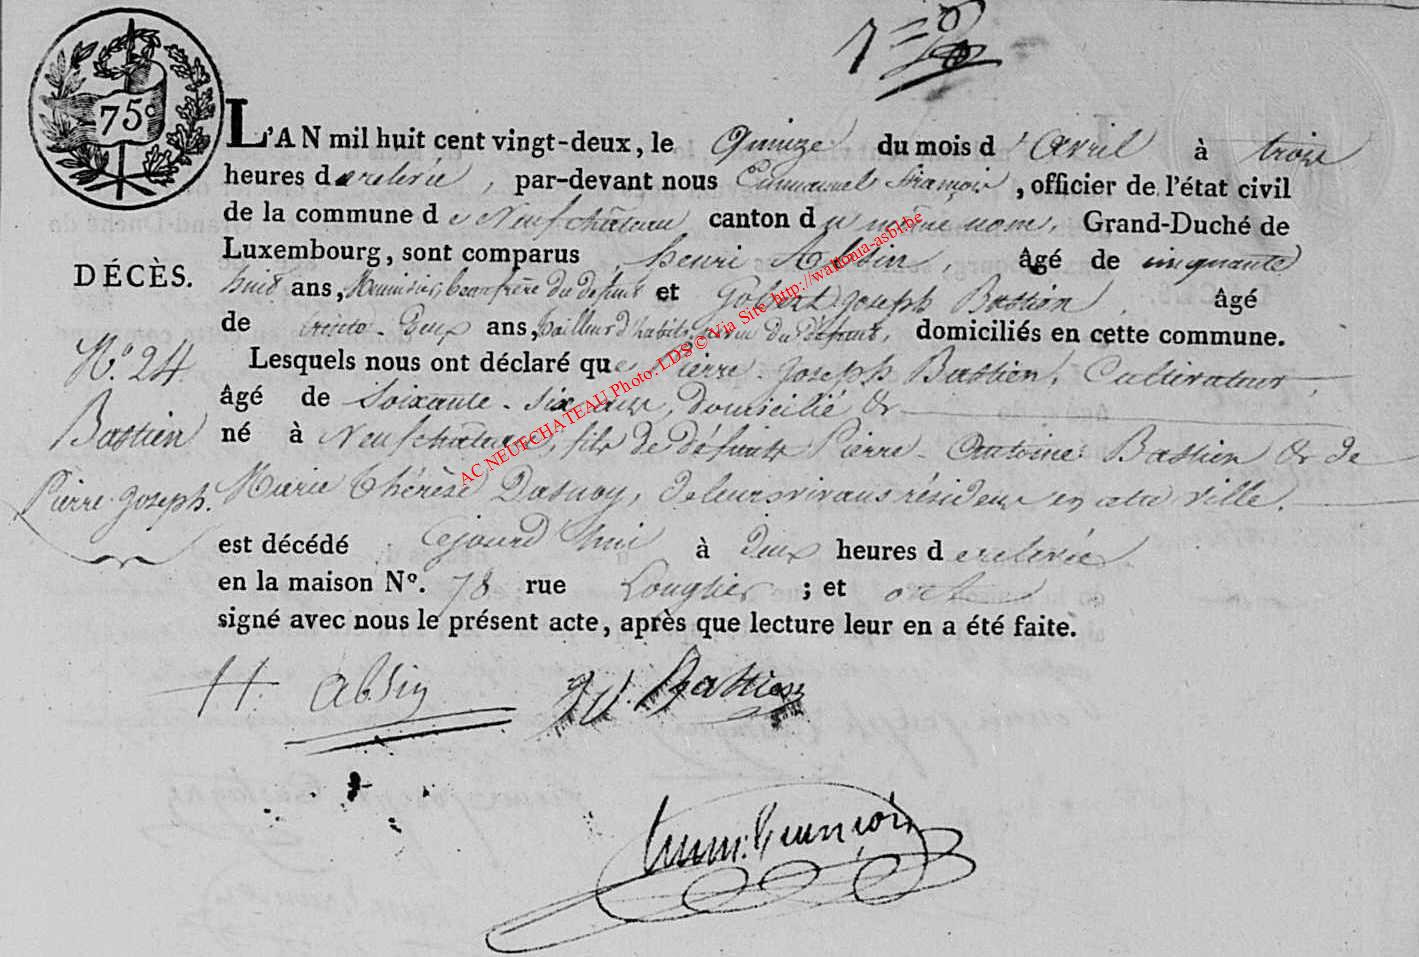 75c
L'AN mil huit cent vingt-deux, le Quinze du mois d'Avril à trois
heures de relevée, par-devant nous Emmanuel François, officier de l'état civil
de la commune de Neufchâteau canton du même nom, Grand-Duché de
Luxembourg, sont comparus henri Absin, âgé de cinquante
DÉCÈS.
huit ans, Menuisier, beaufrère du défunt et Gobert Joseph Bastien, âgé
de trente-deux ans, tailleur d'habits, neveu du défunt, domiciliés en cette commune.
N.o 24
Lesquels nous ont déclaré que Pierre-Joseph Bastien, Cultivateur
âgé de Soixante-six ans, domicilié &
Bastien
né à Neufchâteau, fils de défunts Pierre-Antoine Bastien & de
Pierre-Joseph.
Marie Thérèse Dasnoy, de leurs vivans résidens en cette ville.
est décédé Cejourd'hui à deux heures de relevée
en la maison No. 78 rue Longlier; et ont
signé avec nous le présent acte, après que lecture leur en a été faite.
H. absin
Bastien
Emm. François
AC NEUFCHATEAU Photo: LDS © Via Site http://wallonia-asbl.be